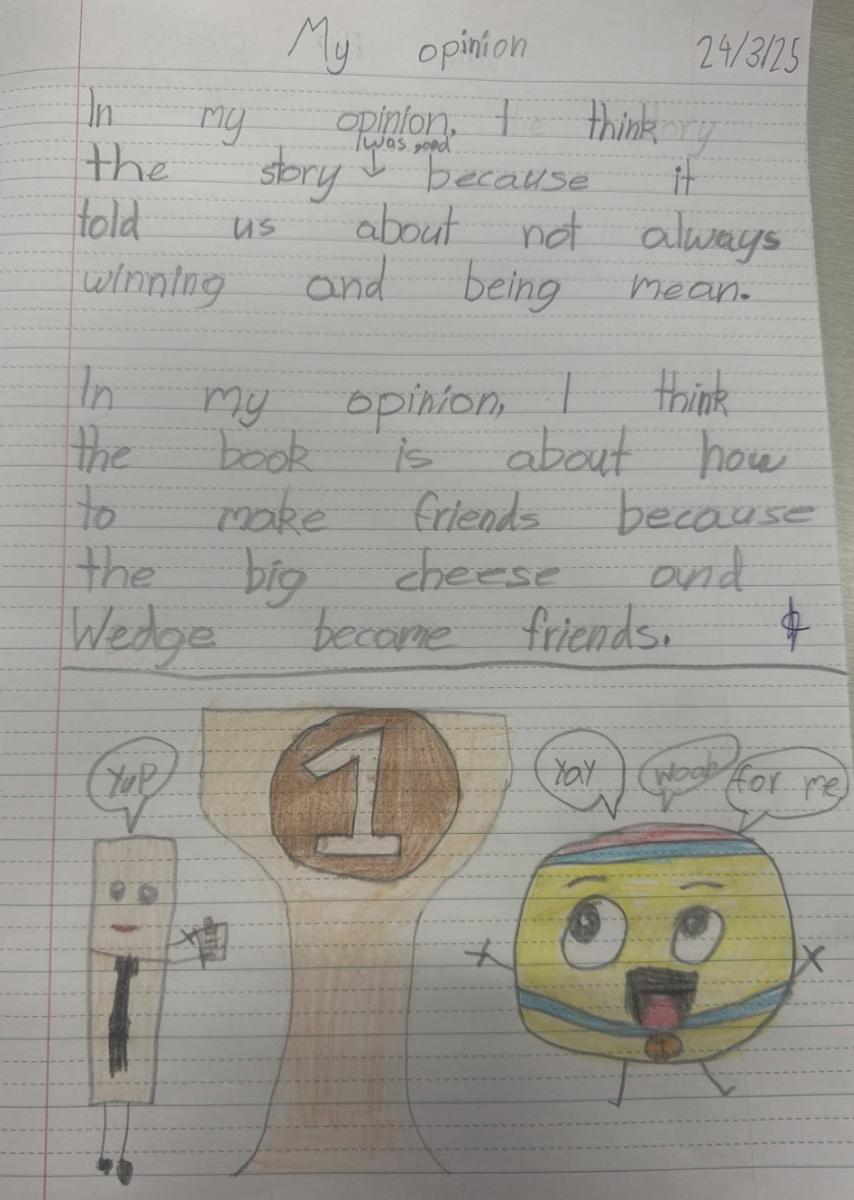 My opinion 24/3/25
In my opinion, I think
was good
the story because it
told us about not always
winning and being mean.
In my opinion, I think
the book is about how
to make friends because
the big cheese and
Wedge became friends.
1
Yup
Yay
for me
1